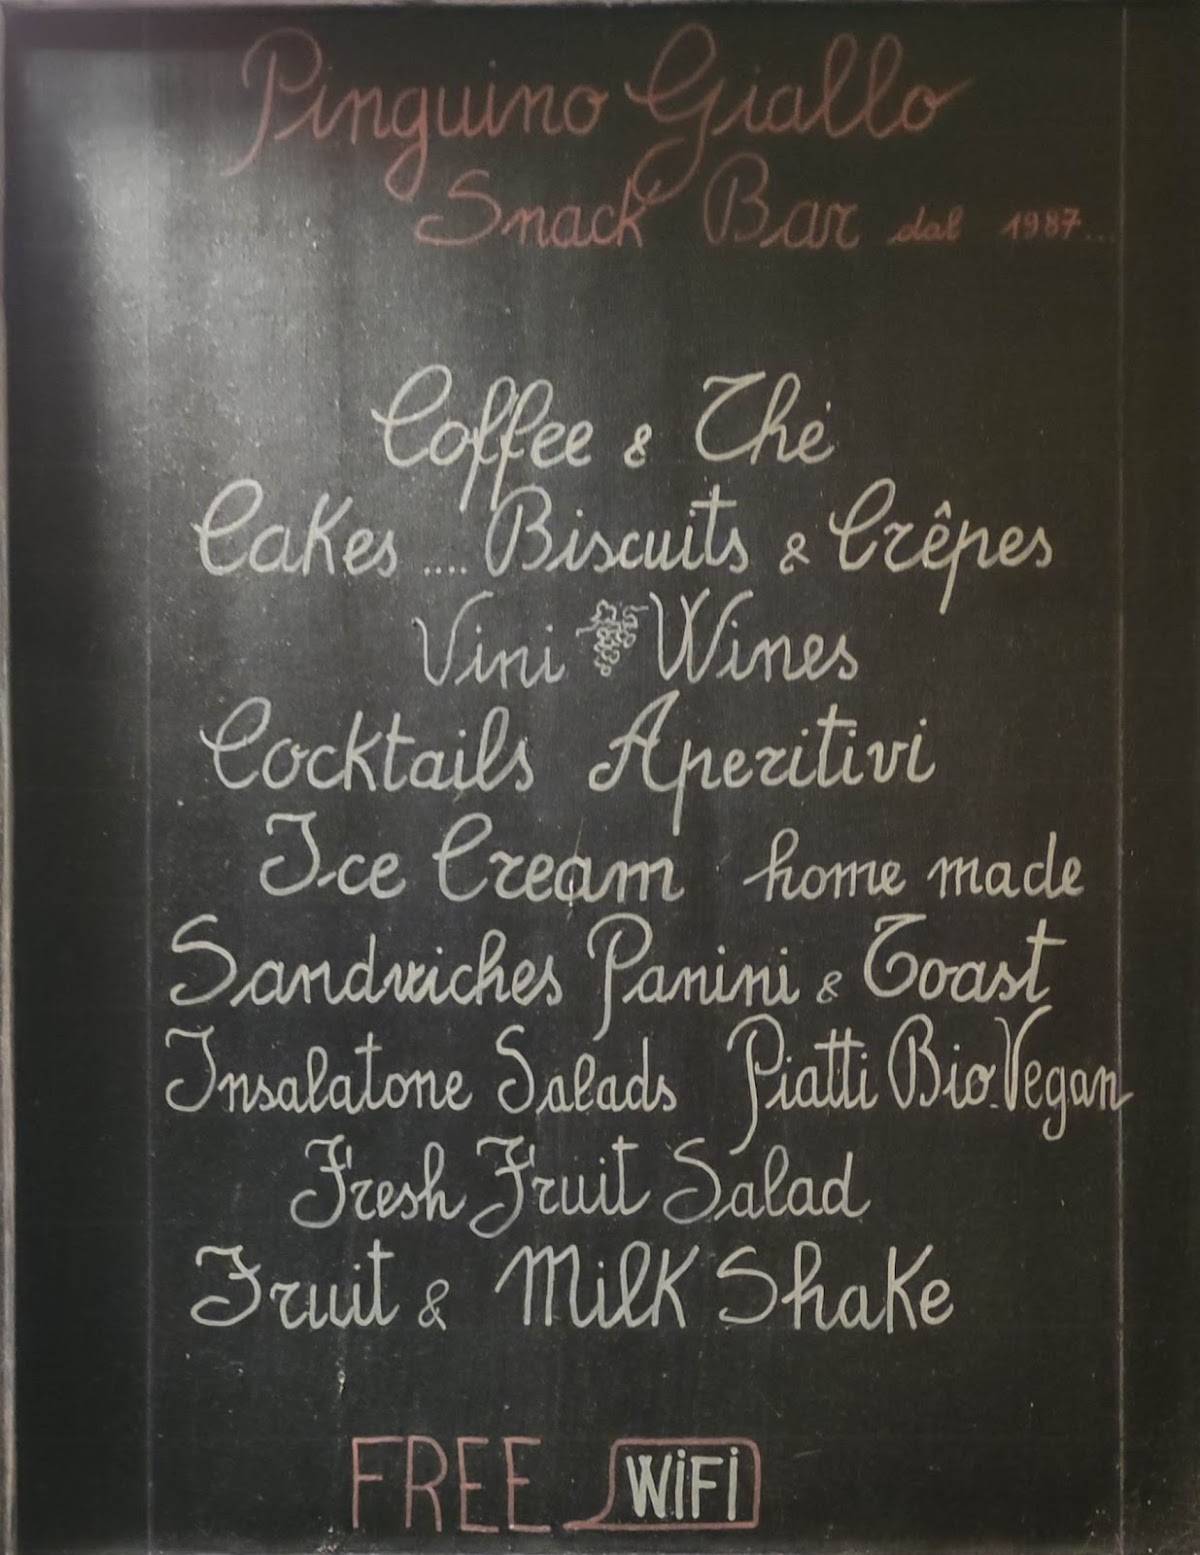 Pinguino Giallo
Snack Bar dal 1987...
Coffee & Thé
Cakes .... Biscuits & Crêpes
Vini Wines
Cocktails Aperitivi
Ice Cream home made
Sandwiches Panini & Toast
Insalatone Salads Piatti Bio-Vegan
Fresh Fruit Salad
Fruit & Milk Shake
FREE WiFi